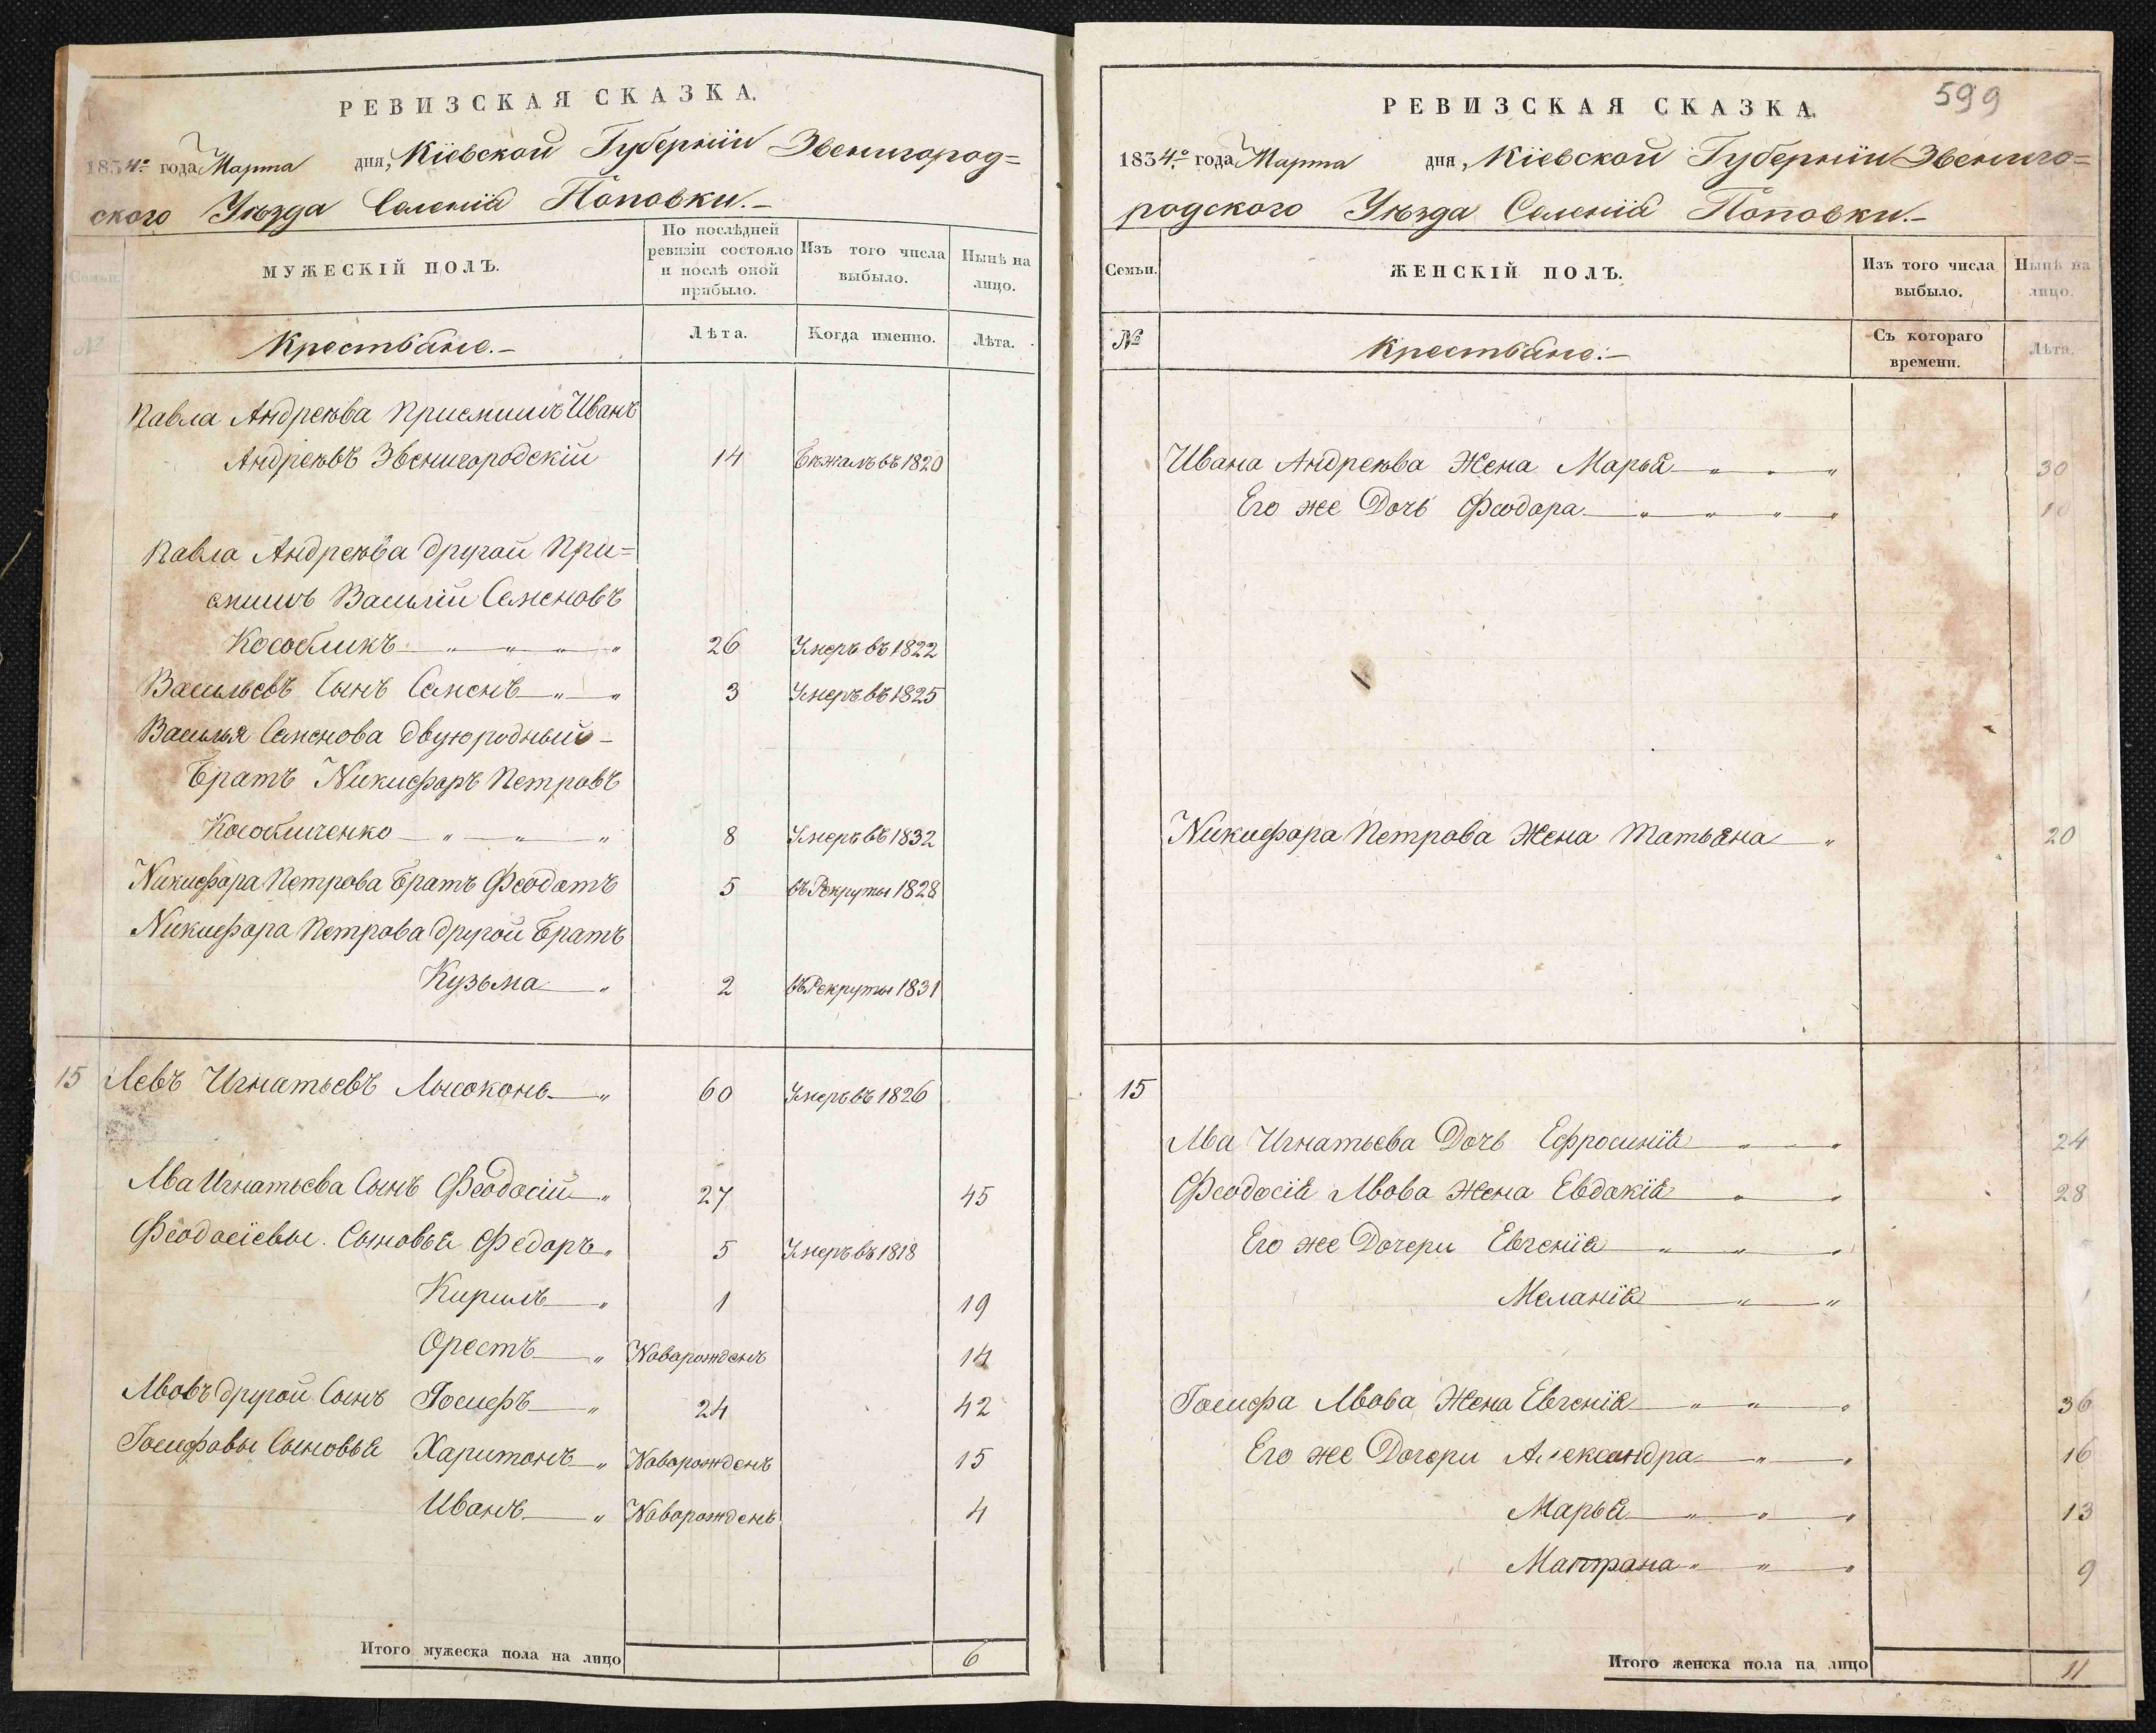 РЕВИЗСКАЯ СКАЗКА.
1834го года Марта дня, Кіевской Губерніи Звенигород=
ского Уѣзда Селенія Поповки.-
Семьи.
МУЖЕСКІЙ ПОЛЪ.
По послѣдней ревизіи состояло и послѣ оной прибыло.
Изъ того числа выбыло.
Нынѣ на лицо.
№
Крестьяне.-
Лѣта.
Когда именно.
Лѣта.
Павла Андреева Приемишъ Иванъ
Андреевъ Звенигородскій 14 Бежалъ въ 1820
Павла Андреева другой При=
емишъ Василій Семеновъ
Кособликъ 26 Умеръ въ 1822
Васильевъ Сынъ Семенъ 3 Умеръ въ 1825
Василья Семенова двуюродный-
Братъ Никифоръ Петровъ
Кособличенко 8 Умеръ въ 1832
Никифора Петрова Братъ Феодотъ 5 въ Рекруты 1828
Никифора Петрова другой Братъ
Кузьма 2 въ Рекруты 1831
15 Левъ Игнатьевъ Лысоконь 60 Умеръ въ 1826
Льва Игнатьева Сынъ Феодосій 27 45
Феодосіевы Сыновья Федоръ 5 Умеръ въ 1818
Кирилъ 1 19
Орестъ Новорожденъ 14
Львовъ другой Сынъ Іосифъ 24 42
Іосифовы Сыновья Харитонъ Новорожденъ 15
Иванъ Новорожденъ 4
Итого мужеска пола на лицо 6
599
РЕВИЗСКАЯ СКАЗКА.
1834го года Марта дня, Кіевской Губерніи Звениго=
родского Уѣзда Селенія Поповки.-
Семьи.
ЖЕНСКІЙ ПОЛЪ.
Изъ того числа выбыло.
Нынѣ на лицо.
№
Крестьяне.-
Съ котораго времени.
Лѣта.
Ивана Андреева Жена Марья 30
Его же Дочь Феодора 10
Никифора Петрова Жена Татьяна 20
15
Льва Игнатьева Дочь Ефросинія 24
Феодосія Львова Жена Евдокія 28
Его же Дочери Евгенія
Меланія
Іосифа Львова Жена Евгенія 36
Его же Дочери Александра 16
Марья 13
Матрона 9
Итого женска пола на лицо 11